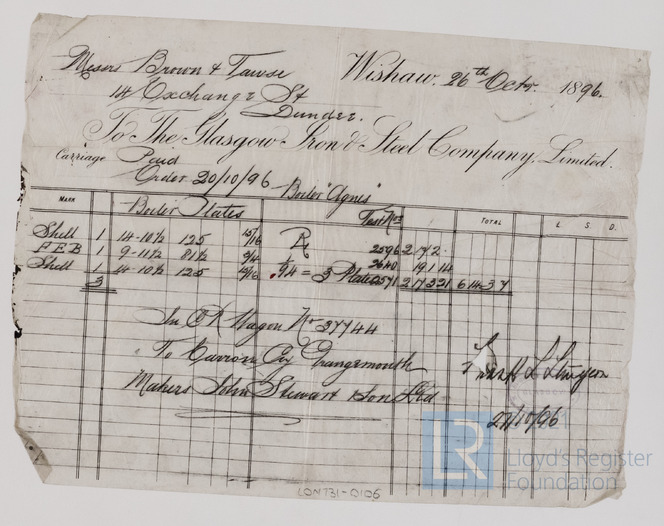 Messrs Brown & Tawse
Wishaw. 26th Octr. 1896.
14 Exchange St
Dundee.
To The Glasgow Iron & Steel Company, Limited.
Carriage Paid
Order 20/10/96
Boiler "Agnes"
MARK Boiler Plates Test Nos TOTAL £ S. D.
Shell 1 14-10½ 125 15/16 2596 2 17 2
FEB 1 9-11½ 81½ 3/4 2640 19 1 14
Shell 1 14-10½ 125 15/16 .94 = 3 Plates 2571 2 17 3 21 6 14 3 7
3
In CR Wagon No 37744
To Carron Coy Grangemouth
Makers John Stewart & Son Ltd
27/10/96
LR
Lloyd's Register
Foundation
LONT31-0106